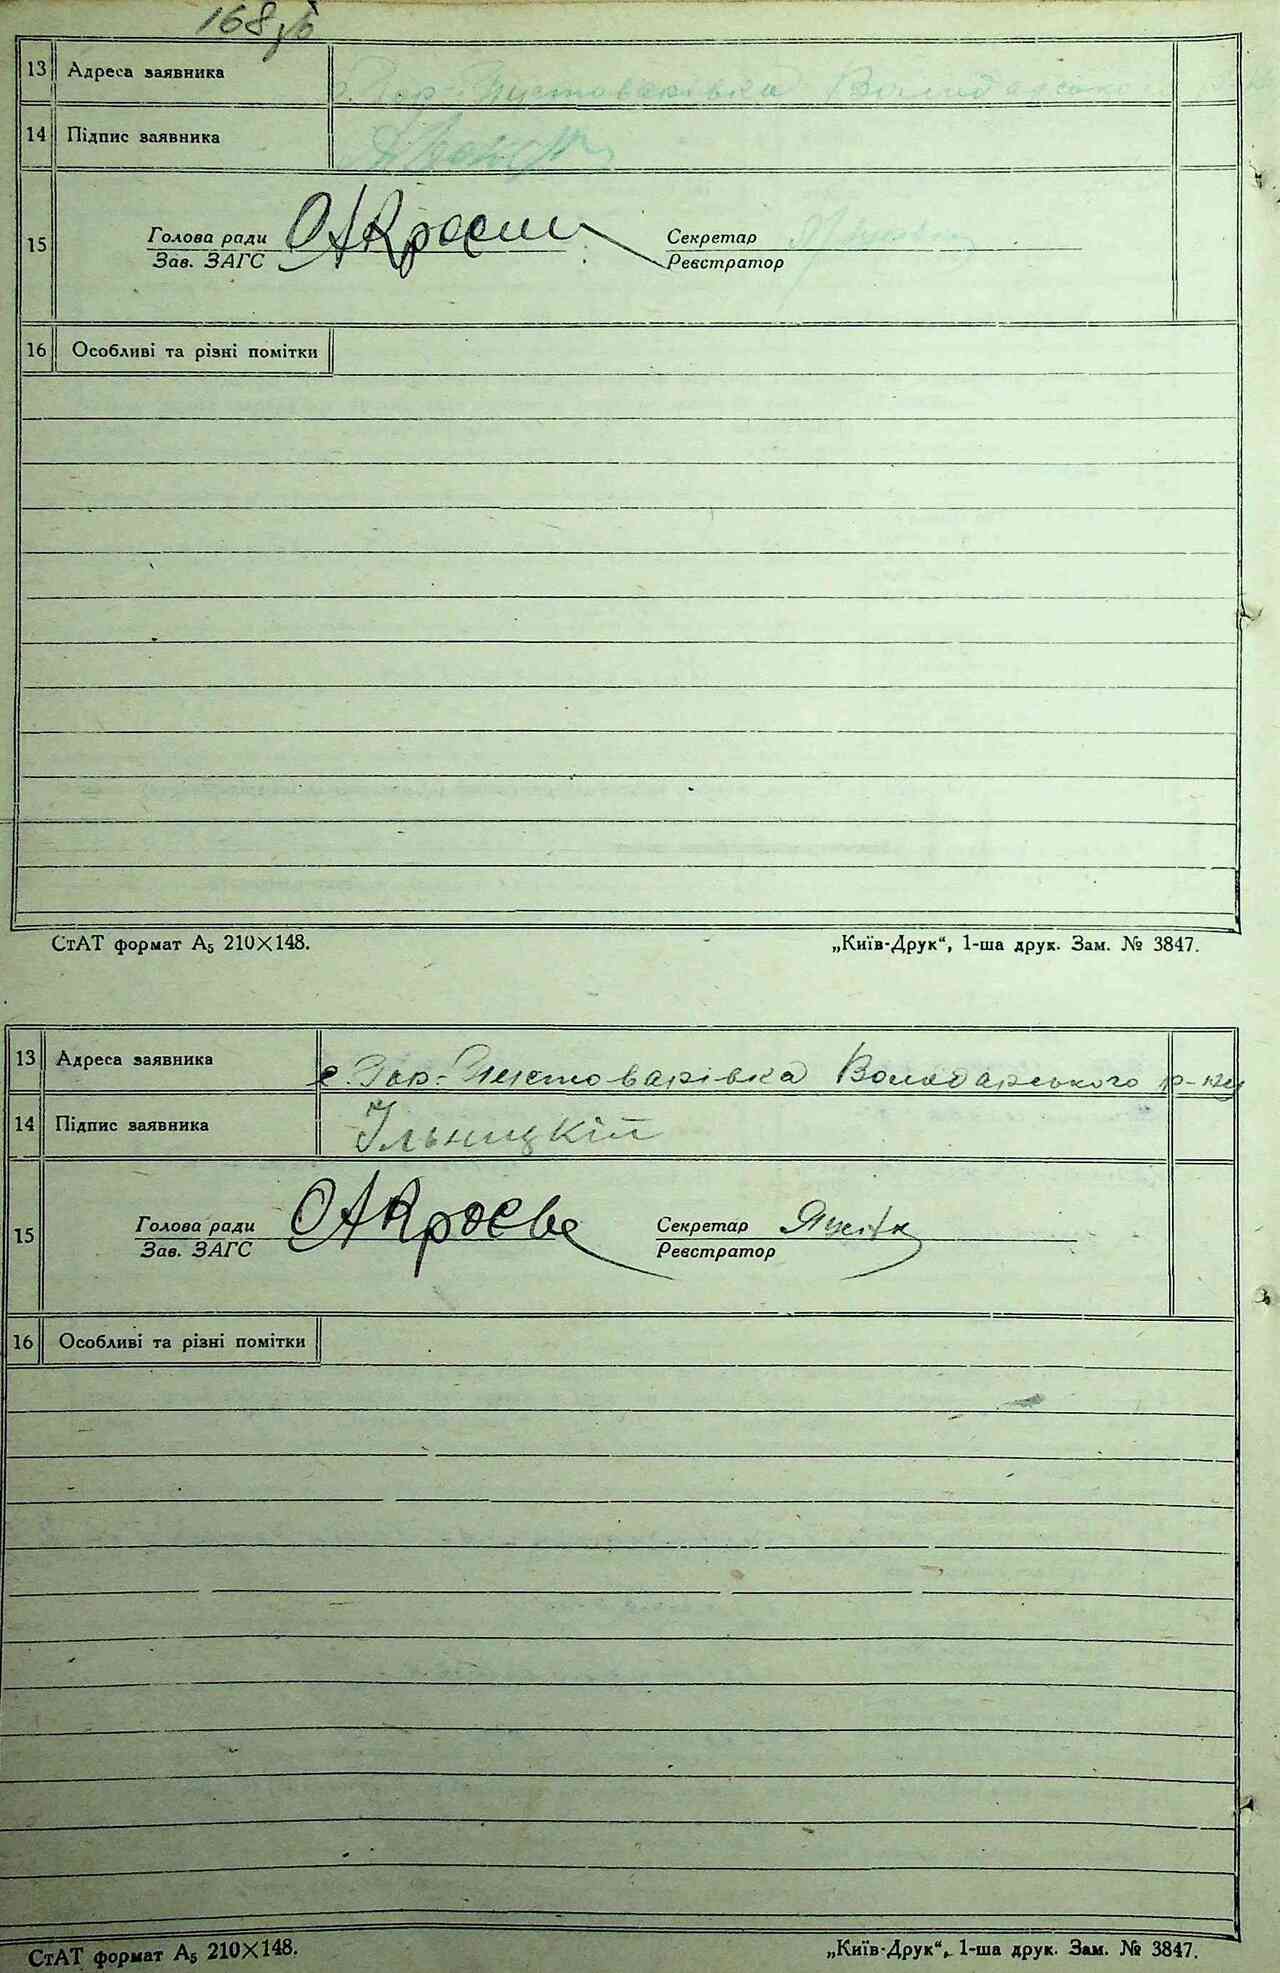 168зв
13 Адреса заявника с. Гор-Пустоварівка Володарського
14 Підпис заявника
15 Голова ради Секретар
Зав. ЗАГС Реєстратор
16 Особливі та різні помітки
СтАТ формат А5 210×148. „Київ-Друк“, 1-ша друк. Зам. № 3847.
13 Адреса заявника с. Гор-Пустоварівка Володарського р-ну
14 Підпис заявника Ільницкій
15 Голова ради Секретар
Зав. ЗАГС Реєстратор
16 Особливі та різні помітки
СтАТ формат А5 210×148. „Київ-Друк“, 1-ша друк. Зам. № 3847.